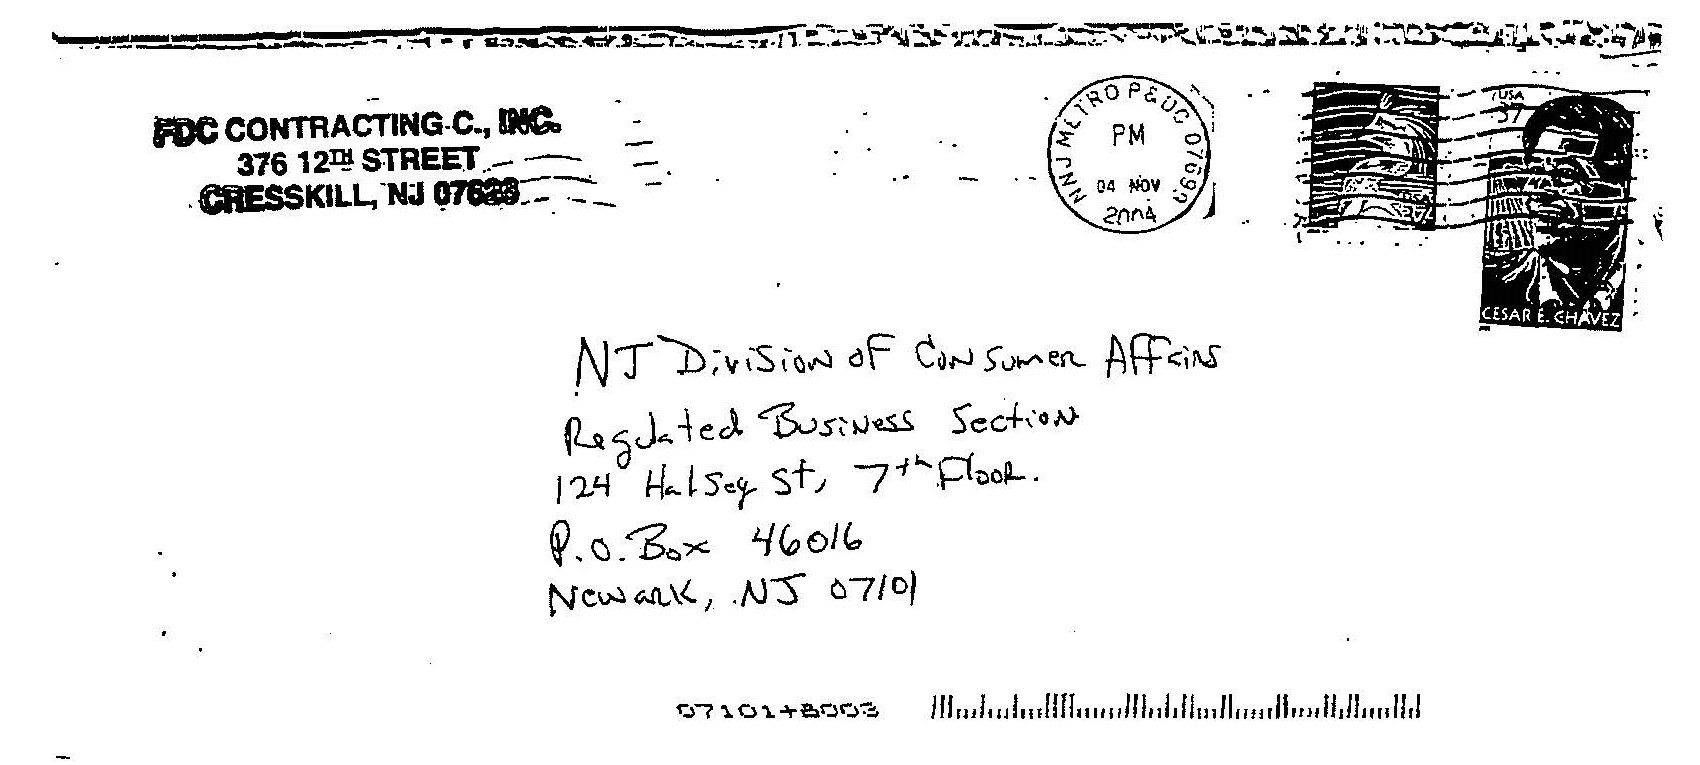 FDC CONTRACTING C., INC.
376 12TH STREET
CRESSKILL, NJ 07626
NNJ METRO P&DC 07699
PM
04 NOV
2004
USA
37
USA
CESAR E. CHAVEZ
NJ Division of Consumer Affairs
Regulated Business Section
124 Halsey St, 7th Floor.
P.O. Box 46016
Newark, NJ 07101
07101+8003